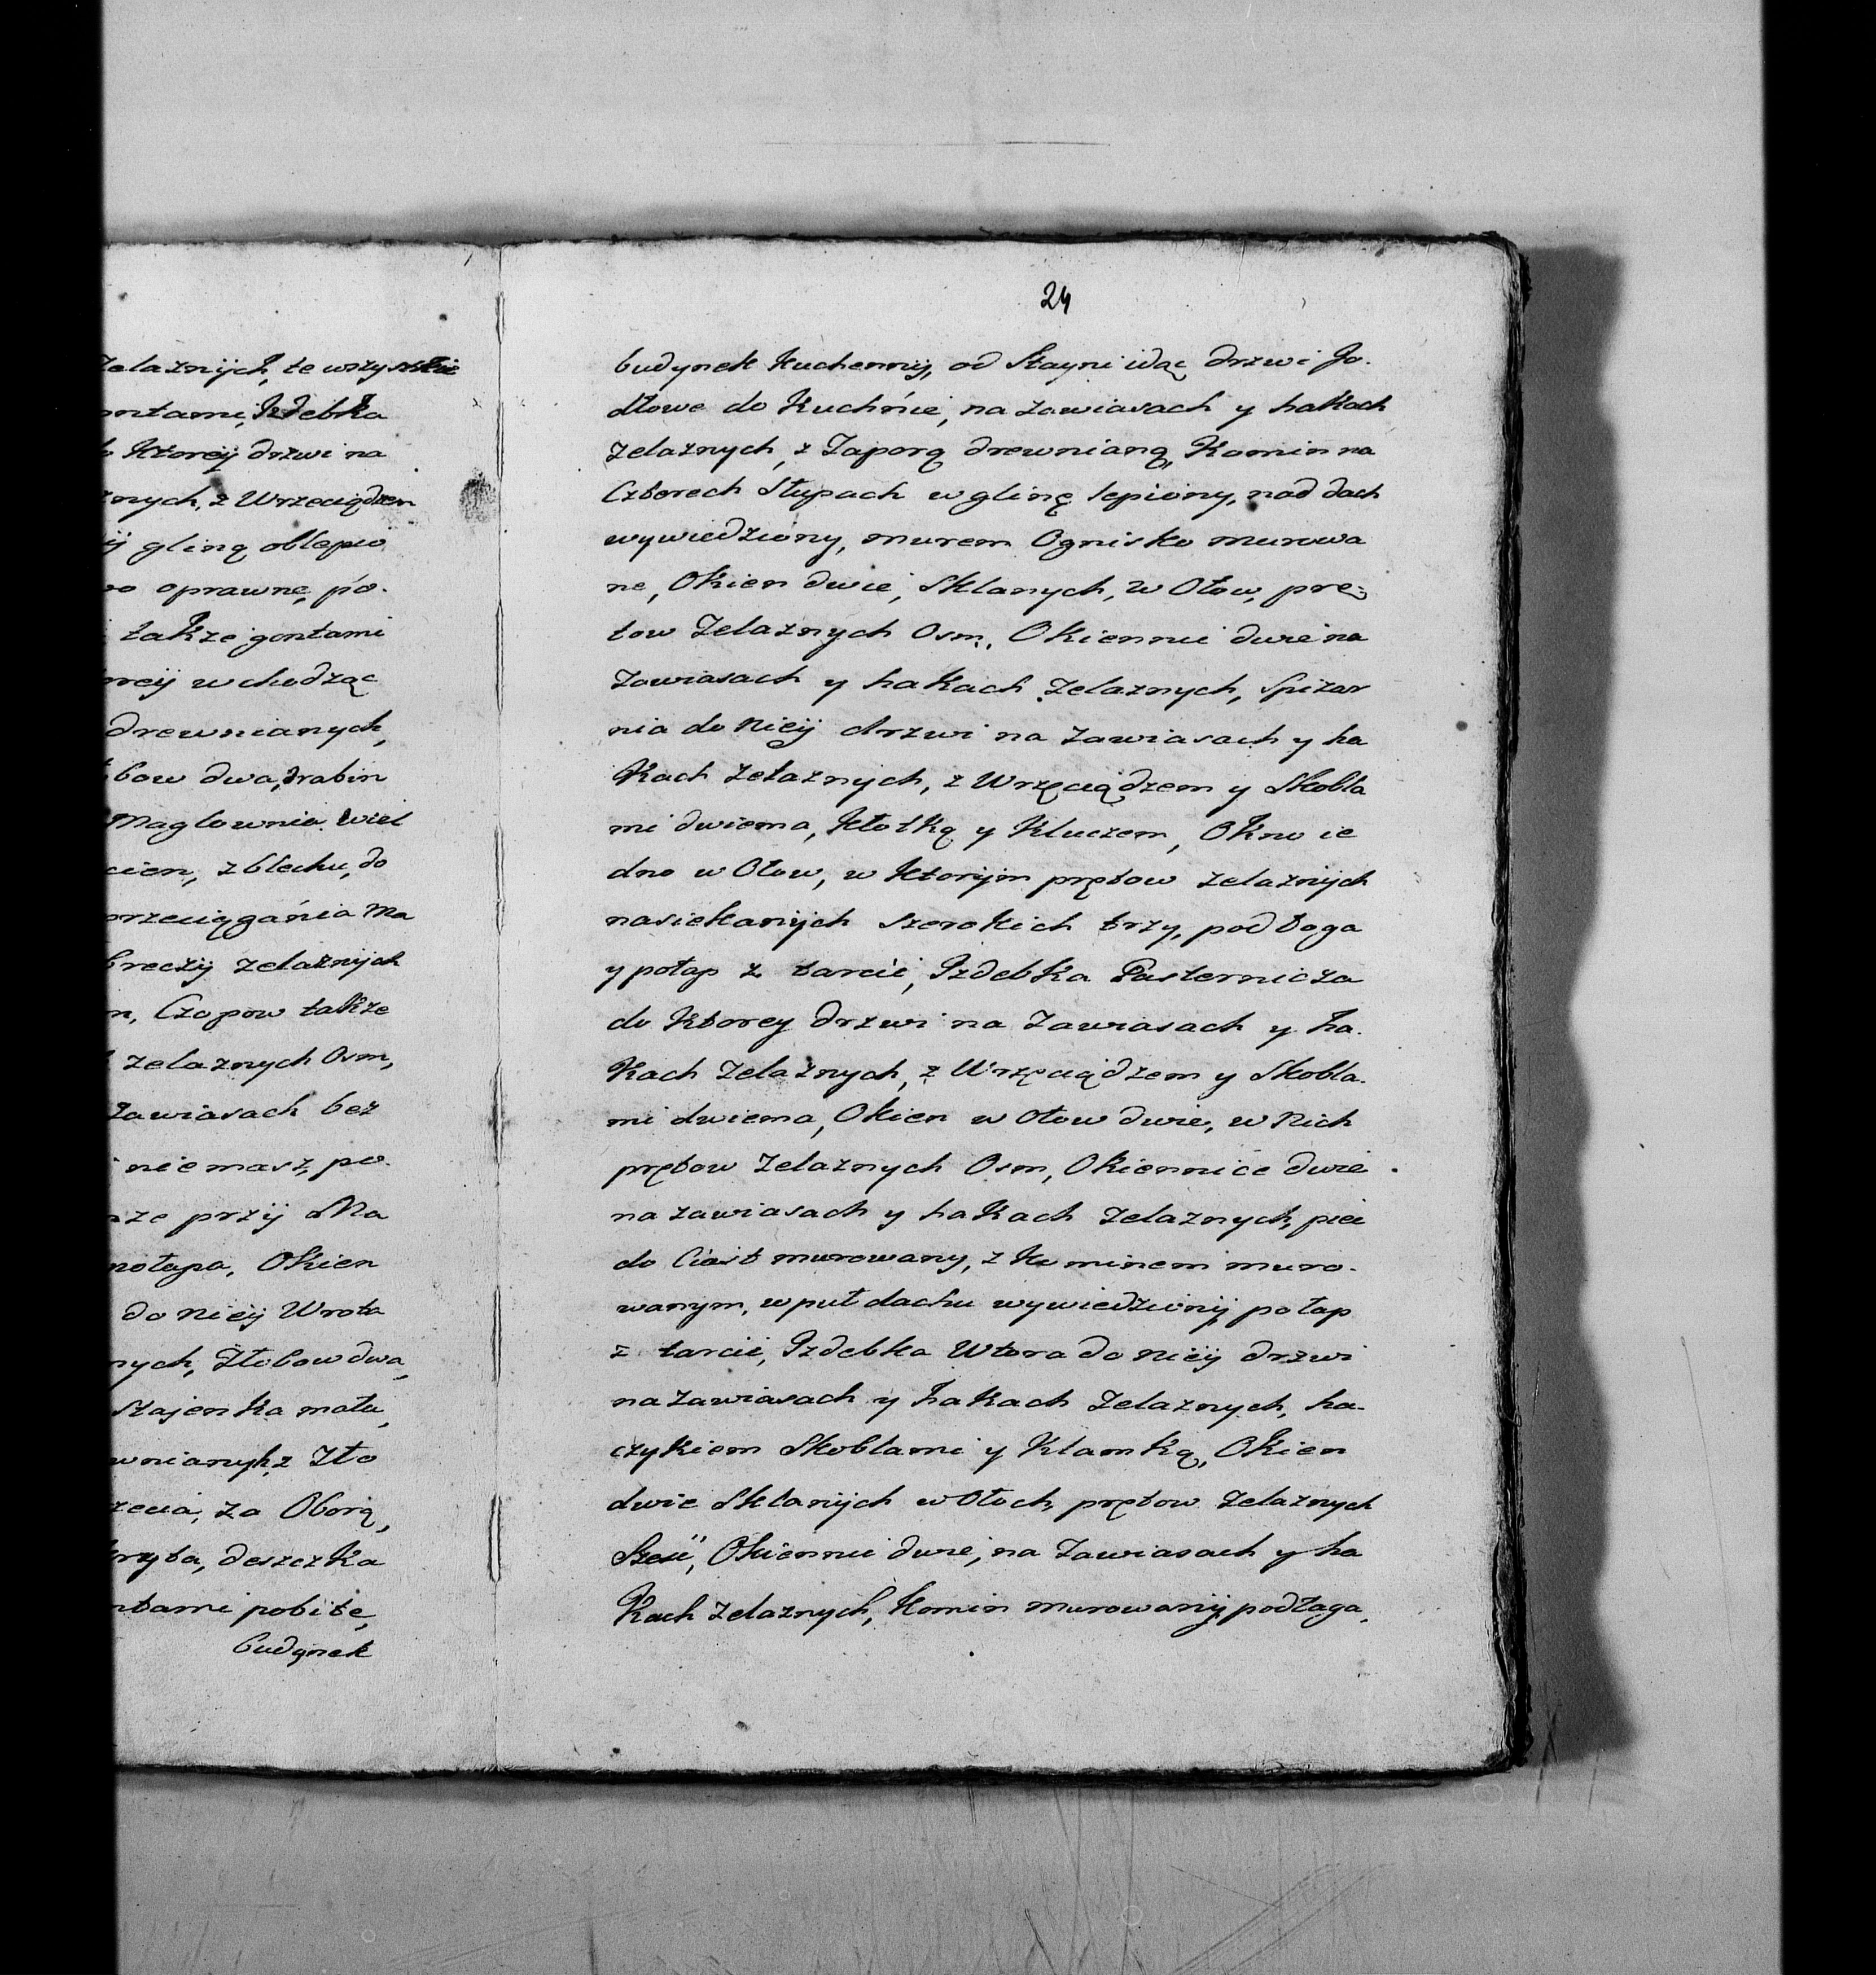 żelaznych, te wszystkie
ontami, Izdebka
Ktorey drzwi na
znych, z Wrzeciądzem
gliną oblepio
oprawne, po.
także gontami
wchodząc
drewnianych,
bow dwa, drabin
Maglownia wiel
z blachu, do
przeciągánia Ma
zelaznych
Czopow także
zelaznych Osm,
zawiasach bez
nie masz, po.
przÿ Ma
Okien
do nieÿ Wrota
nych, Złobow dwa,
Stajenka mała,
wnianych, z Zło
za Oborą,
deszczka
ntami pobite,
budynek
24
budynek Kuchennÿ, od Stayni idąc drzwi Jo.
dłowe do Kuchńie, na zawiasach y hakach
zelaznych, z Zaporą drewnianą, Komin na
Czterech Słupach w glinę lepiony, nad dach
wywiedziony, murem Ognisko murowa
ne, Okien dwie, Sklanych, w Ołow, prę-
tow Zelaznych Osm, Okiennic dwie na
Zawiasach y hakach Zelaznych, Spizar
nia do nieÿ drzwi na zawiasach y ha
Kach żelaznych, z Wrzęciądzem y Skobla
mi dwiema, Kłotką y Kluczem, Okno ie
dno w Ołow, w Ktorÿm prętow zelaznÿch
nasiekanÿch szerokich trzy, podłoga
y połap z tarcić, Izdebka Pasternicza
do Ktorey drzwi na Zawiasach y ha.
Kach żelaznych, z Wrzęciądzem y Skobla.
mi dwiema, Okien w Ołow dwie, w Nich
prętow żelaznych Osm, Okiennice dwie
na zawiasach y hakach zelaznych, piec
do Ciast murowany, z Kominem muro.
wanym, w puł dachu wywiedzionÿ połap
z tarcić, Izdebka Wtora do nieÿ drzwi
na zawiasach y hakach Zelaznych, ha.
czykiem Skoblami y Klamką, Okien
dwie Sklanÿch w Ołoch, prętow żelaznych
Sześć, Okiennic dwie, na Zawiasach y ha
Kach zelaznych, Komin murowanÿ podłaga,